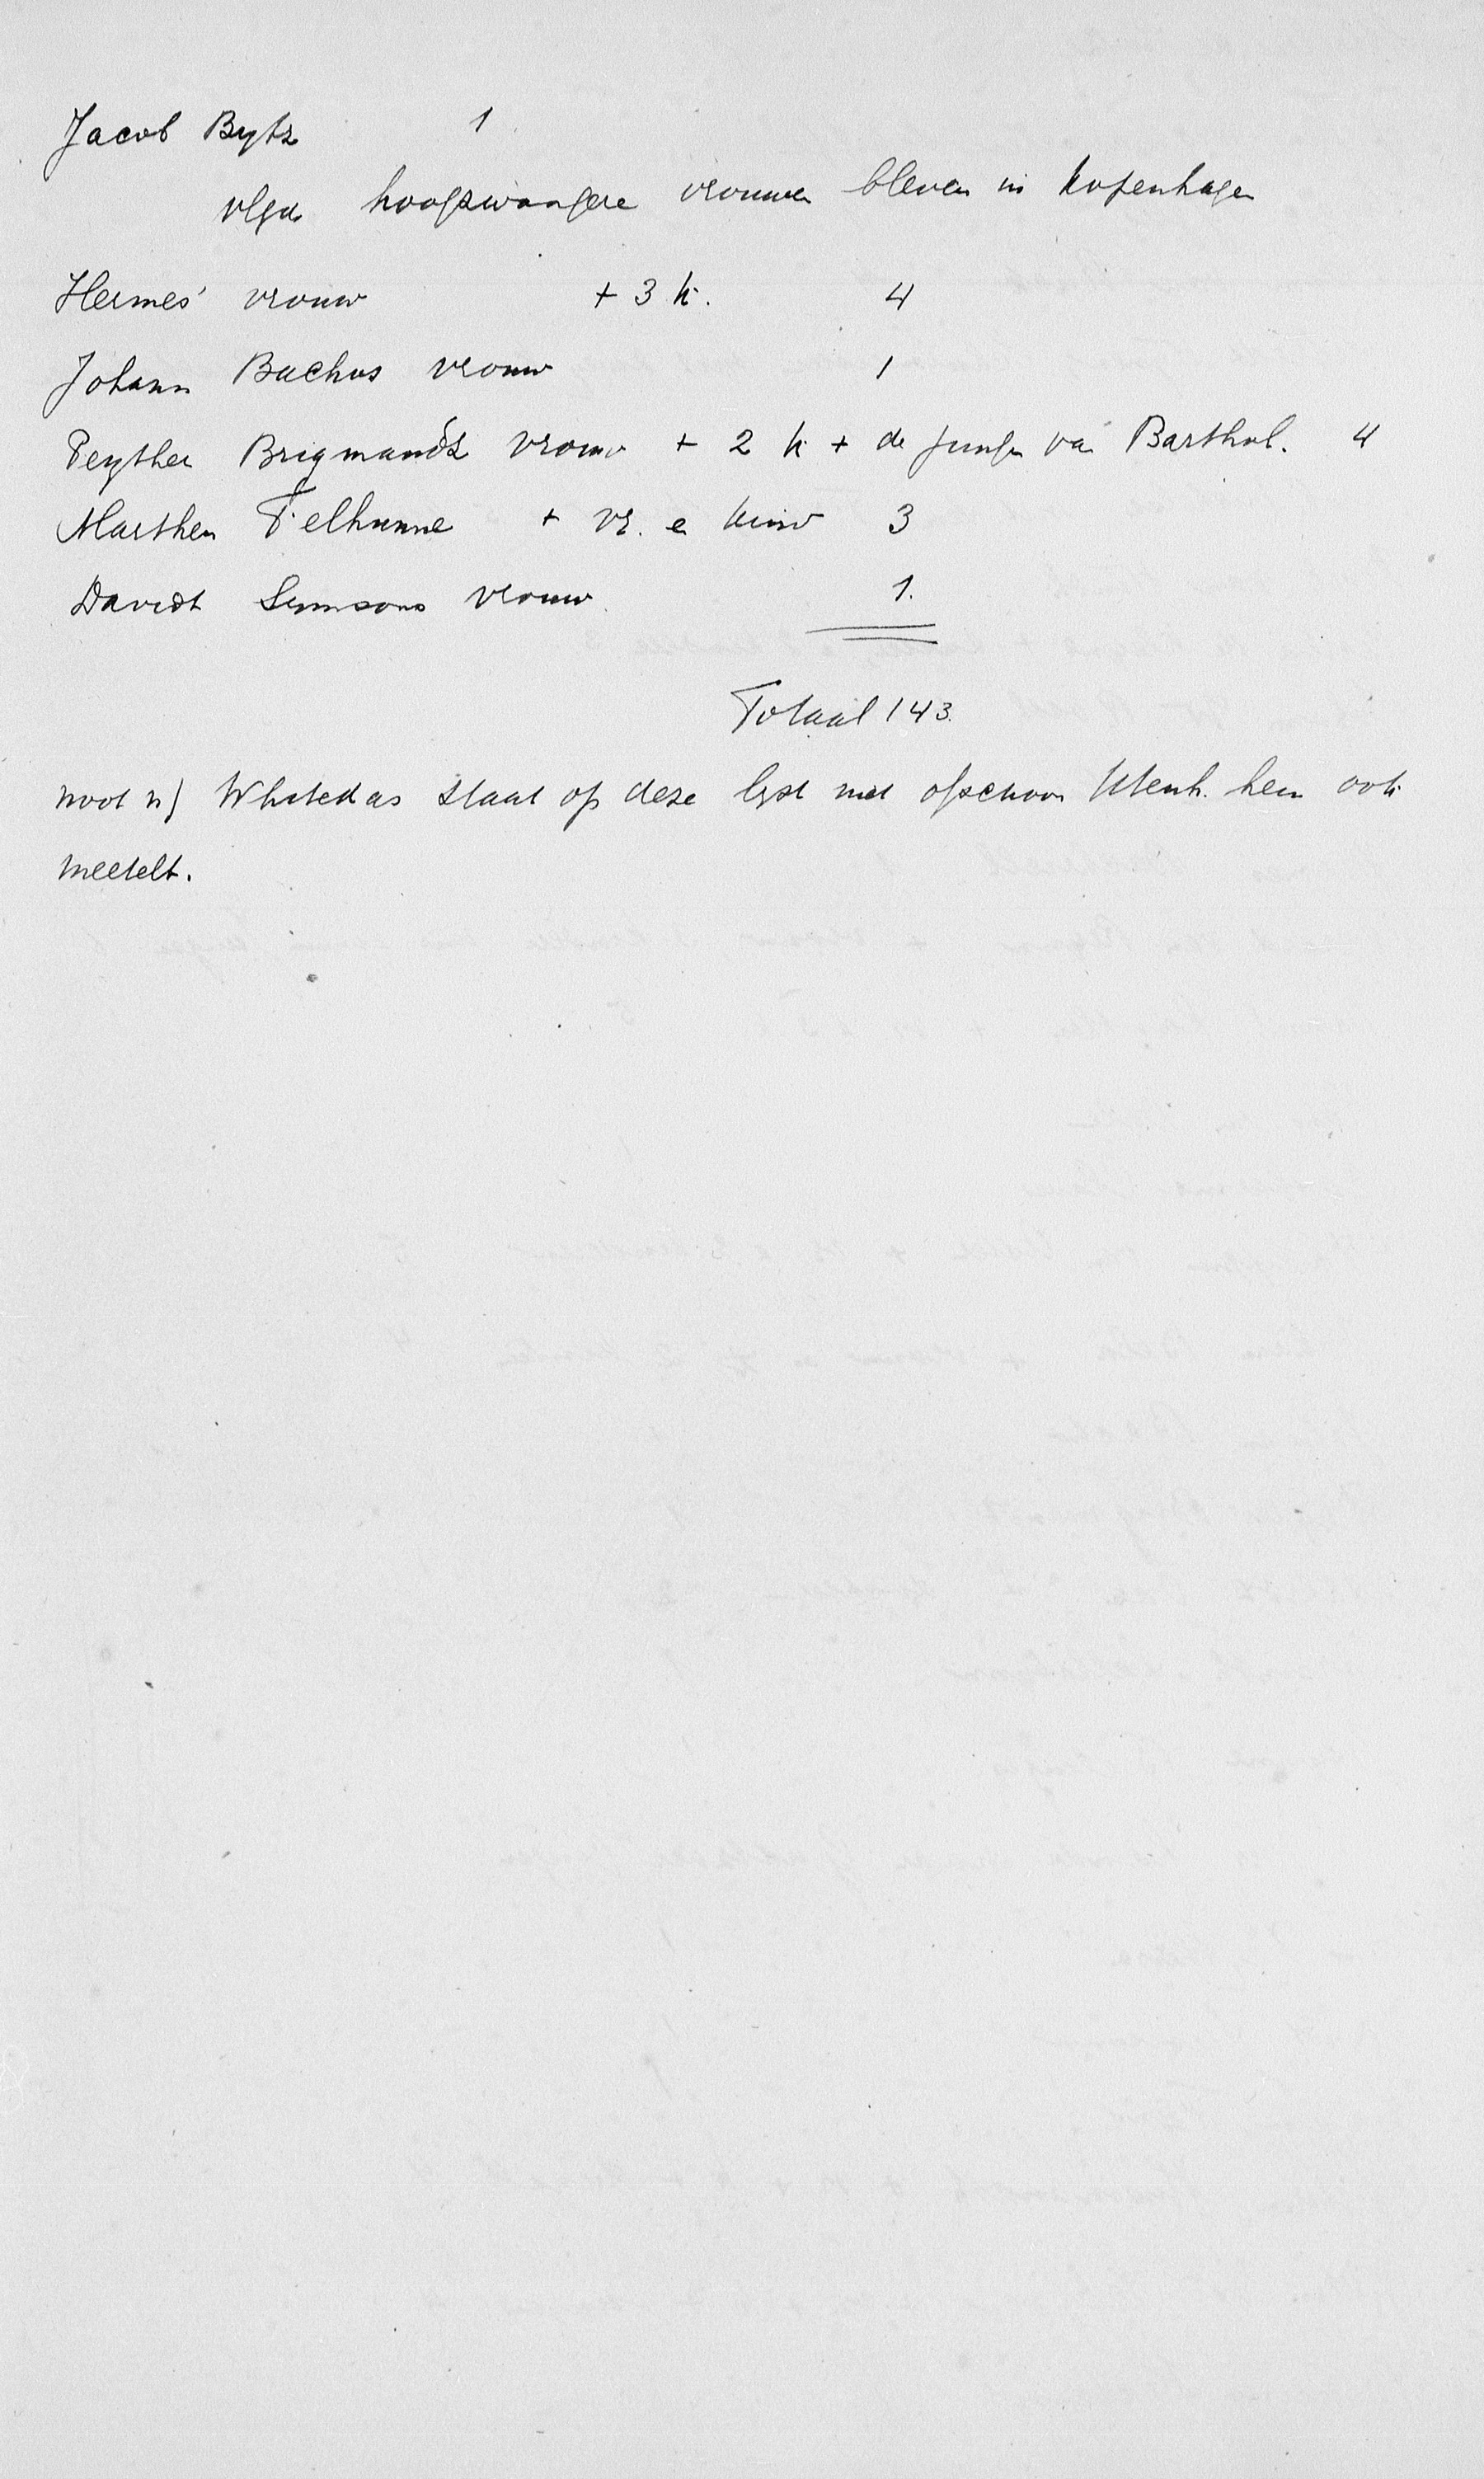 Jacob Bytz 1
vlgde hoogzwangere vrouwen bleven in Kopenhagen
Hermes' vrouw + 3 k. 4
Johann Bachus vrouw 1
Peyther Brigmandt vrouw + 2 k + de jungen van Barthol. 4
Marthen Felhunne + vr. e kind 3
Davidt Simsons vrouw 1.
Totaal 143.
noot Whitedas staat op deze lyst niet ofschoon Utenh. hem ook
meetelt.